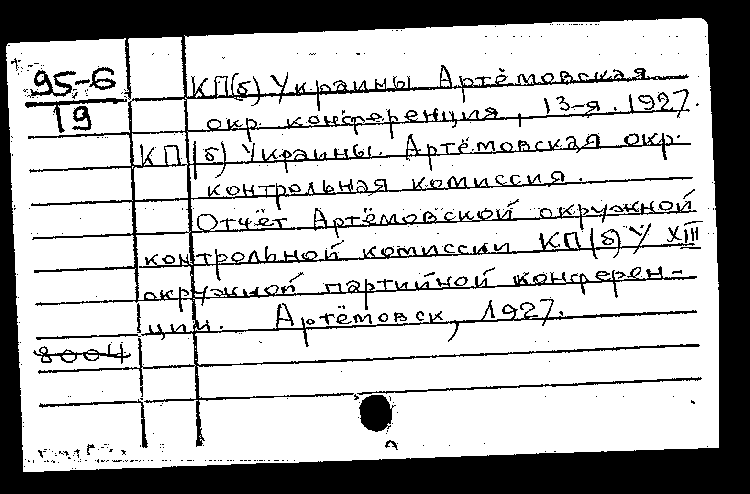 95-6
19
КП(б) Украины Артёмовская
окр. конференция, 13-я. 1927.
КП(б) Украины. Артёмовская окр.
контрольная комиссия.
Отчёт Артёмовской окружной
контрольной комиссии КП(б)У XIII
окружной партийной конферен-
ции. Артёмовск, 1927.
8004